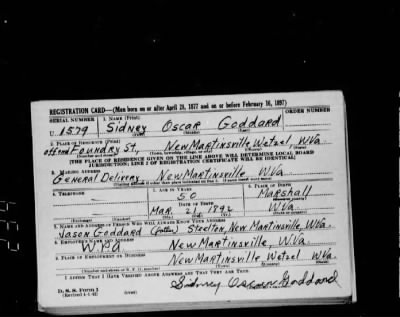 REGISTRATION CARD—(Men born on or after April 28, 1877 and on or before February 16, 1897)
SERIAL NUMBER 1. NAME (Print) ORDER NUMBER
U 1579 Sidney Oscar Goddard
(First) (Middle) (Last)
2. PLACE OF RESIDENCE (Print)
off end Foundry St., New Martinsville, Wetzel, W.Va.
(Number and street) (Town, township, village, or city) (County) (State)
[THE PLACE OF RESIDENCE GIVEN ON THE LINE ABOVE WILL DETERMINE LOCAL BOARD
JURISDICTION; LINE 2 OF REGISTRATION CERTIFICATE WILL BE IDENTICAL]
3. MAILING ADDRESS
General Delivery New Martinsville W.Va.
[Mailing address if other than place indicated on line 2. If same insert word same]
4. TELEPHONE 5. AGE IN YEARS 6. PLACE OF BIRTH
50 Marshall
DATE OF BIRTH (Town or county)
Mar. 21 1892 W.Va.
(Exchange) (Number) (Mo.) (Day) (Yr.) (State or country)
7. NAME AND ADDRESS OF PERSON WHO WILL ALWAYS KNOW YOUR ADDRESS
Jason Goddard (father) Steelton, New Martinsville, W.Va.
8. EMPLOYER'S NAME AND ADDRESS
W.P.A. New Martinsville, W.Va.
9. PLACE OF EMPLOYMENT OR BUSINESS
New Martinsville Wetzel W.Va.
(Number and street or R. F. D. number) (Town) (County) (State)
I AFFIRM THAT I HAVE VERIFIED ABOVE ANSWERS AND THAT THEY ARE TRUE.
D. S. S. Form 1
(Revised 4-1-42)
Sidney Oscar Goddard